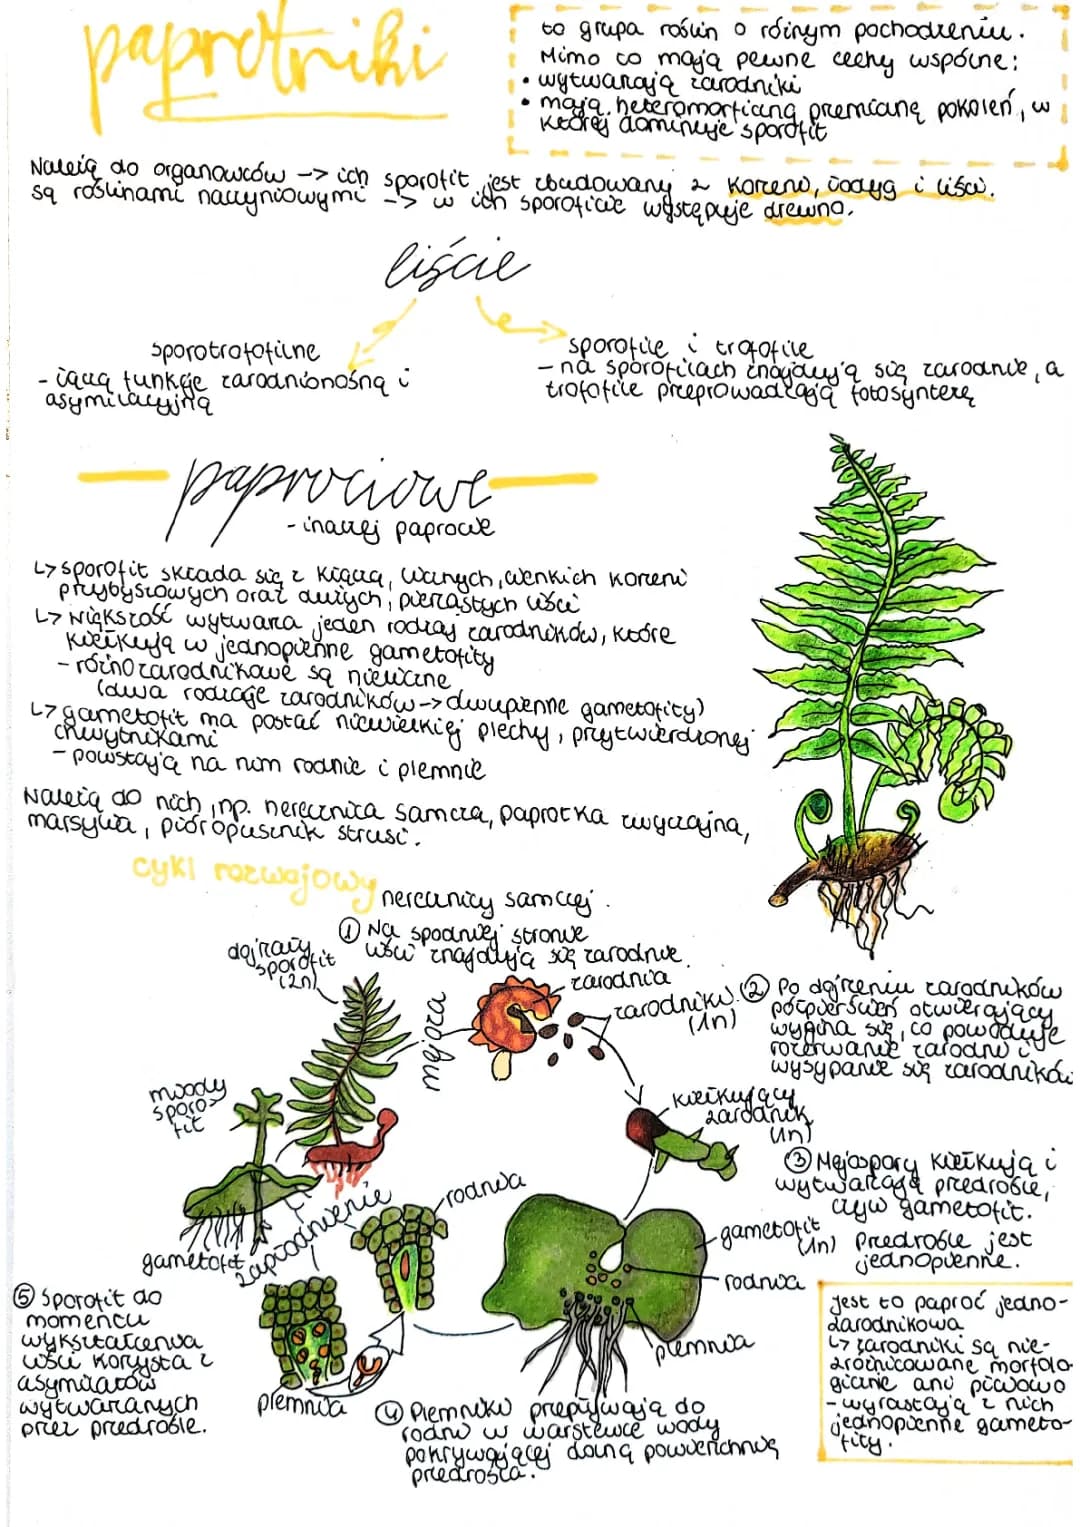 paprotniki
to grupa roślin o różnym pochodzeniu.
Mimo to mają pewne cechy wspólne:
• wytwarzają zarodniki
• mają heteromorficzną przemianę pokoleń, w
której dominuje sporofit
Należą do organowców -> ich sporofit jest zbudowany z korzeni, łodyg i liści.
są roślinami naczyniowymi -> w ich sporoficie występuje drewno.
liście
sporotrofofilne
- łączą funkcję zarodnionośną i
asymilacyjną
sporofile i trofofile
- na sporofilach znajdują się zarodnie, a
trofofile przeprowadzają fotosyntezę
paprociowe
- inaczej paprocie
↳ sporofit składa się z kłącza, licznych, cienkich korzeni
przybyszowych oraz dużych, pierzastych liści
↳ większość wytwarza jeden rodzaj zarodników, które
kiełkują w jednopienne gametofity
- różnozarodnikowe są nieliczne
(dwa rodzaje zarodników -> dwupienne gametofity)
↳ gametofit ma postać niewielkiej plechy, przytwierdzonej
chwytnikami
- powstają na nim rodnie i plemnie
Należą do nich, np. nerecznica samcza, paprotka zwyczajna,
marsylia, pióropusznik strusi.
cykl rozwojowy
nerecznicy samczej.
① Na spodniej stronie
liści znajdują się zarodnie.
dojrzały
sporofit
(2n)
mejoza
zarodnia
zarodniki
(1n)
② Po dojrzeniu zarodników
półpierścień otwierający
wygina się, co powoduje
rozerwanie zarodni i
wysypanie się zarodników
młody
sporo-
fit
kiełkujący
zarodnik
(1n)
③ Mejospory kiełkują i
wytwarzają przedrośle,
czyli gametofit.
Przedrośle jest
jednopienne.
gametofit
zapłodnienie
rodnia
gametofit
(1n)
rodnia
plemnia
⑤ Sporofit do
momentu
wykształcenia
liści korzysta z
asymilatów
wytwarzanych
przez przedrośle.
plemnia
④ Plemniki przepływają do
rodni w warstewce wody
pokrywającej dolną powierzchnię
przedrośla.
jest to paproć jedno-
zarodnikowa
↳ zarodniki są nie-
zróżnicowane morfolo-
gicznie ani płciowo
- wyrastają z nich
jednopienne gameto-
fity.